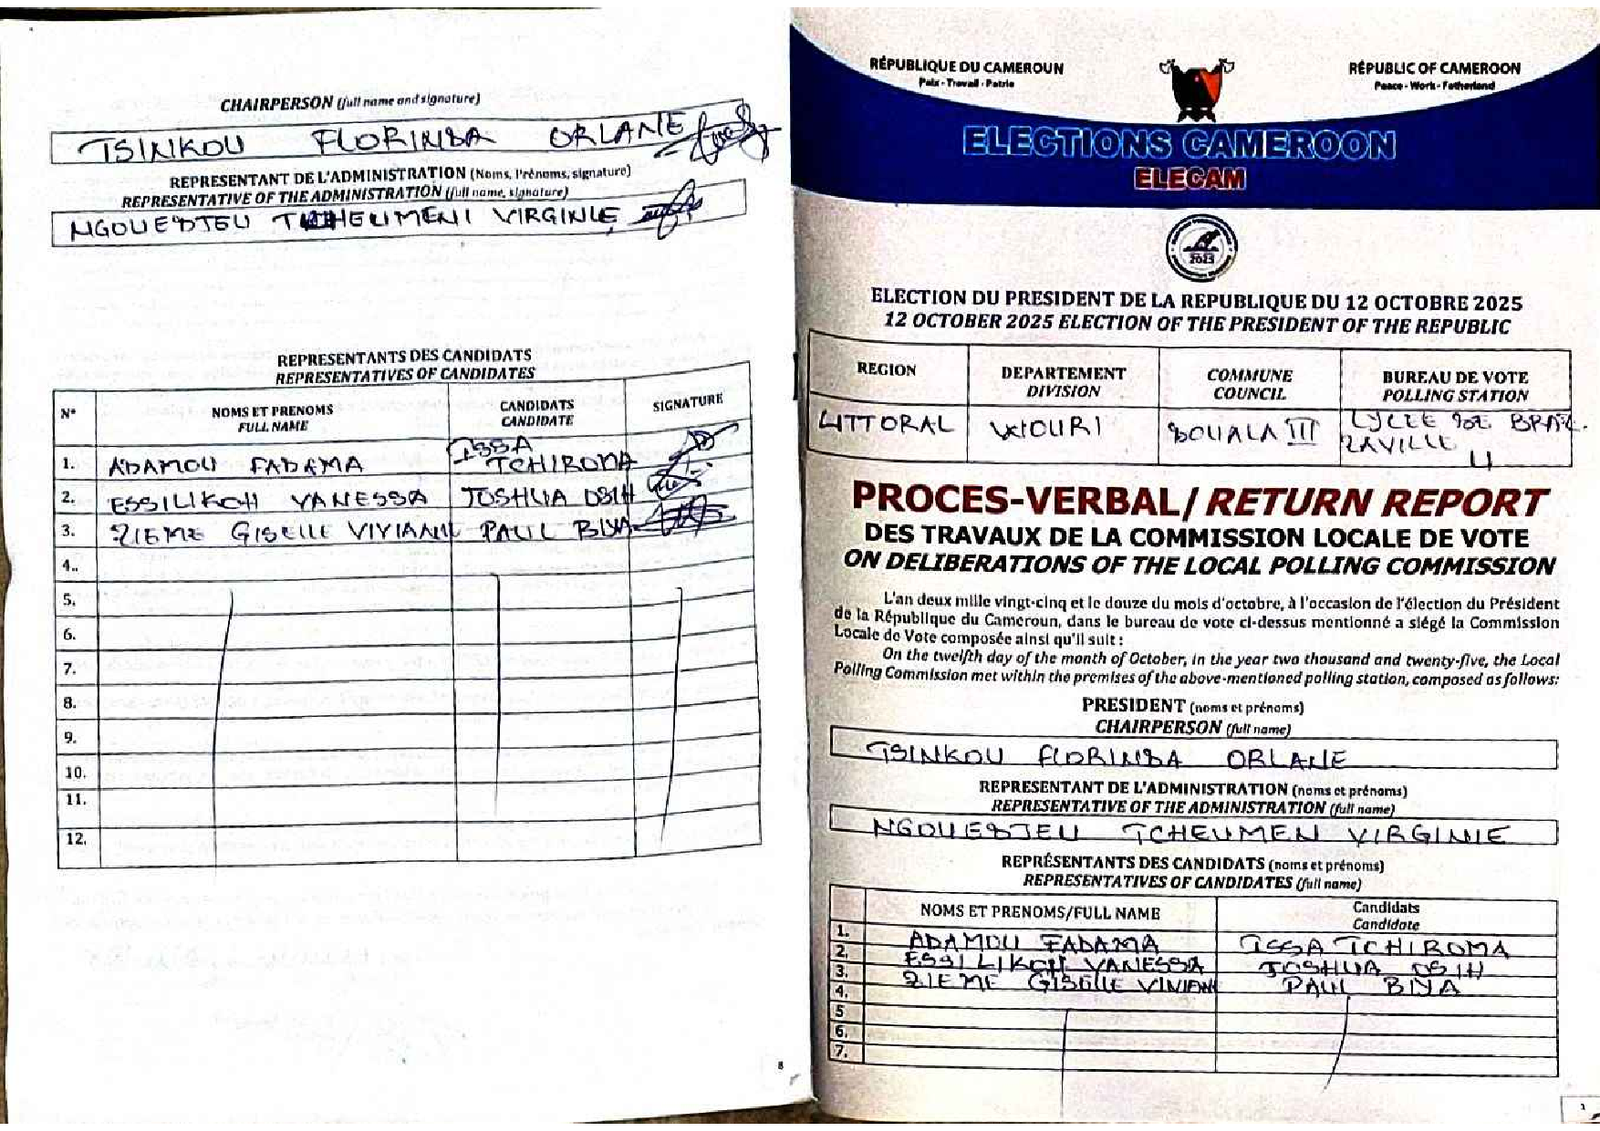 CHAIRPERSON (full name and signature)
TSINKOU FLORINDA ORLANE
REPRESENTANT DE L'ADMINISTRATION (Noms, Prénoms, signature)
REPRESENTATIVE OF THE ADMINISTRATION (full name, signature)
NGOUEDJEU TCHEUMENI VIRGINIE
REPRESENTANTS DES CANDIDATS
REPRESENTATIVES OF CANDIDATES
N° NOMS ET PRENOMS FULL NAME CANDIDATS CANDIDATE SIGNATURE
1. ADAMOU FADAMA ISSA TCHIROMA
2. ESSILIKOH VANESSA JOSHUA OSIH
3. ZIEME GISELLE VIVIANE PAUL BIYA
4..
5.
6.
7.
8.
9.
10.
11.
12.
8
RÉPUBLIQUE DU CAMEROUN
Paix - Travail - Patrie
RÉPUBLIC OF CAMEROON
Peace - Work - Fatherland
ELECTIONS CAMEROON
ELECAM
2023
ELECTION DU PRESIDENT DE LA REPUBLIQUE DU 12 OCTOBRE 2025
12 OCTOBER 2025 ELECTION OF THE PRESIDENT OF THE REPUBLIC
REGION DEPARTEMENT DIVISION COMMUNE COUNCIL BUREAU DE VOTE POLLING STATION
LITTORAL WOURI DOUALA III LYCEE DE BRAZ-
ZAVILLE
U
PROCES-VERBAL/ RETURN REPORT
DES TRAVAUX DE LA COMMISSION LOCALE DE VOTE
ON DELIBERATIONS OF THE LOCAL POLLING COMMISSION
L'an deux mille vingt-cinq et le douze du mois d'octobre, à l'occasion de l'élection du Président
de la République du Cameroun, dans le bureau de vote ci-dessus mentionné a siégé la Commission
Locale de Vote composée ainsi qu'il suit :
On the twelfth day of the month of October, in the year two thousand and twenty-five, the Local
Polling Commission met within the premises of the above-mentioned polling station, composed as follows:
PRESIDENT (noms et prénoms)
CHAIRPERSON (full name)
TSINKOU FLORINDA ORLANE
REPRESENTANT DE L'ADMINISTRATION (noms et prénoms)
REPRESENTATIVE OF THE ADMINISTRATION (full name)
NGOUEDJEU TCHEUMEN VIRGINIE
REPRÉSENTANTS DES CANDIDATS (noms et prénoms)
REPRESENTATIVES OF CANDIDATES (full name)
NOMS ET PRENOMS/FULL NAME Candidats Candidate
1. ADAMOU FADAMA ISSA TCHIROMA
2. ESSILIKOH VANESSA JOSHUA OSIH
3. ZIEME GISELLE VIVIAN PAUL BIYA
4.
5
6.
7.
1